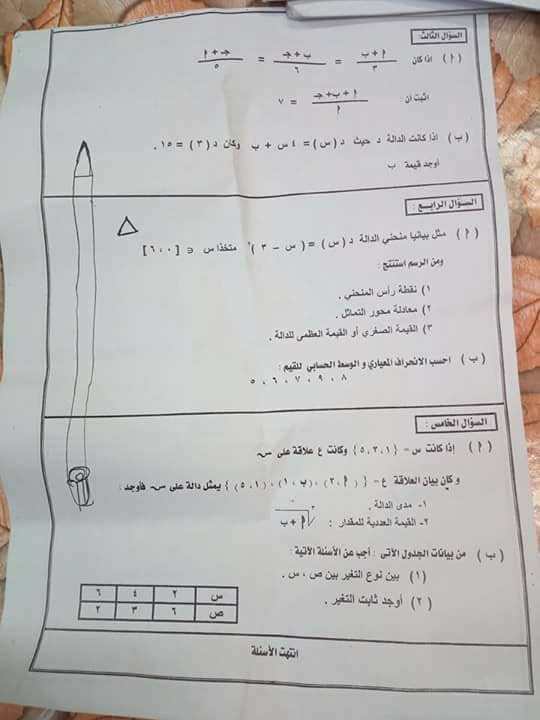 السؤال الثالث:
( أ ) اذا كان (أ + ب)/٣ = (ب + جـ)/٦ = (جـ + أ)/٥
اثبت أن : (أ + ب + جـ)/أ = ٧
( ب ) اذا كانت الدالة د حيث د ( س ) = ٤ س + ب وكان د ( ٣ ) = ١٥ .
أوجد قيمة ب
السؤال الرابع :
( أ ) مثل بيانيا منحني الدالة د ( س ) = ( س – ٣ )٢ متخذا س ∈ [ ٠ ، ٦ ]
ومن الرسم استنتج :
١) نقطة رأس المنحني .
٢) معادلة محور التماثل .
٣) القيمة الصغري أو القيمة العظمى للدالة .
( ب ) احسب الانحراف المعياري و الوسط الحسابي للقيم :
٨ ، ٩ ، ٧ ، ٦ ، ٥
السؤال الخامس :
( أ ) إذا كانت س = { ١ ، ٣ ، ٥ } وكانت ع علاقة على س
وكان بيان العلاقة ع = { ( أ ، ٣ ) ، ( ب ، ١ ) ، ( ١ ، ٥ ) } يمثل دالة على س فأوجد :
١- مدى الدالة .
٢- القيمة العددية للمقدار : أ + ب
( ب ) من بيانات الجدول الآتى : أجب عن الأسئلة الآتية :
( ١ ) بين نوع التغير بين ص ، س .
( ٢ ) أوجد ثابت التغير .
س ٢ ٤ ٦
ص ٦ ٣ ٢
انتهت الأسئلة